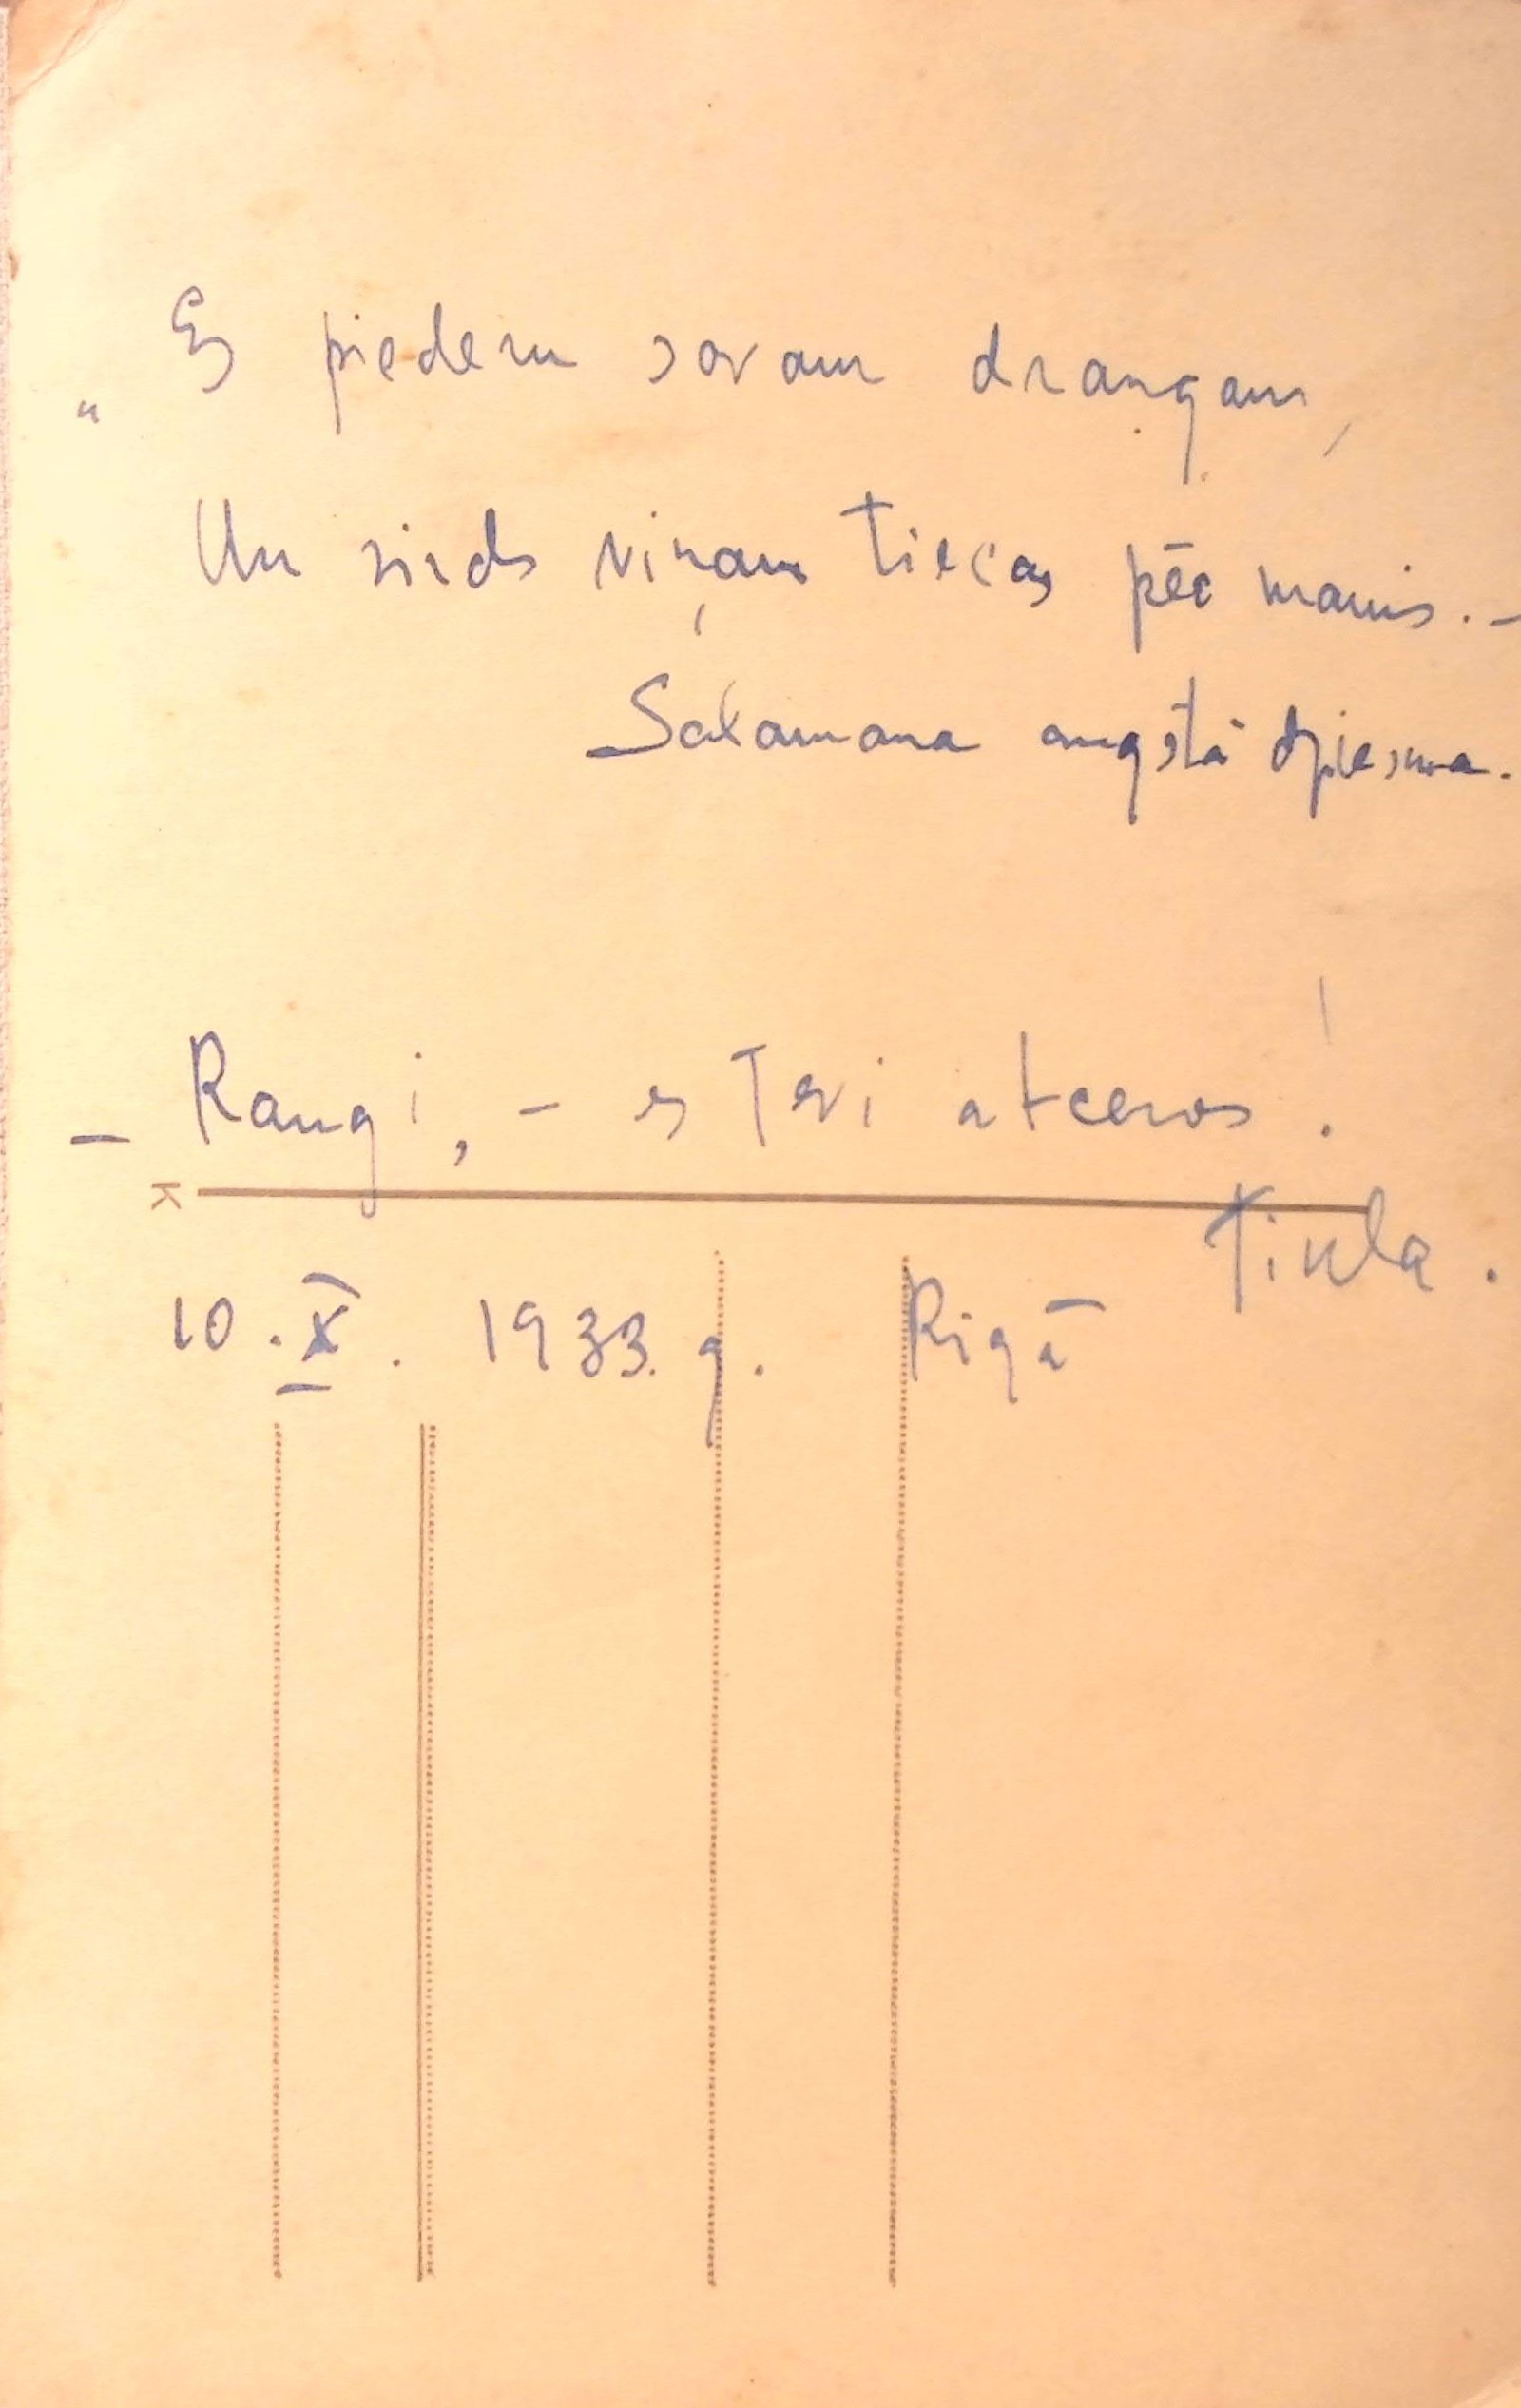 „Es piederu savam draugam,
Un sirds viņam tiecas pēc manis. –
Salamana augstā dziesma.
– Raugi, – es Tevi atceros!
K
Tikla.
10. X. 1933. g. Rīgā